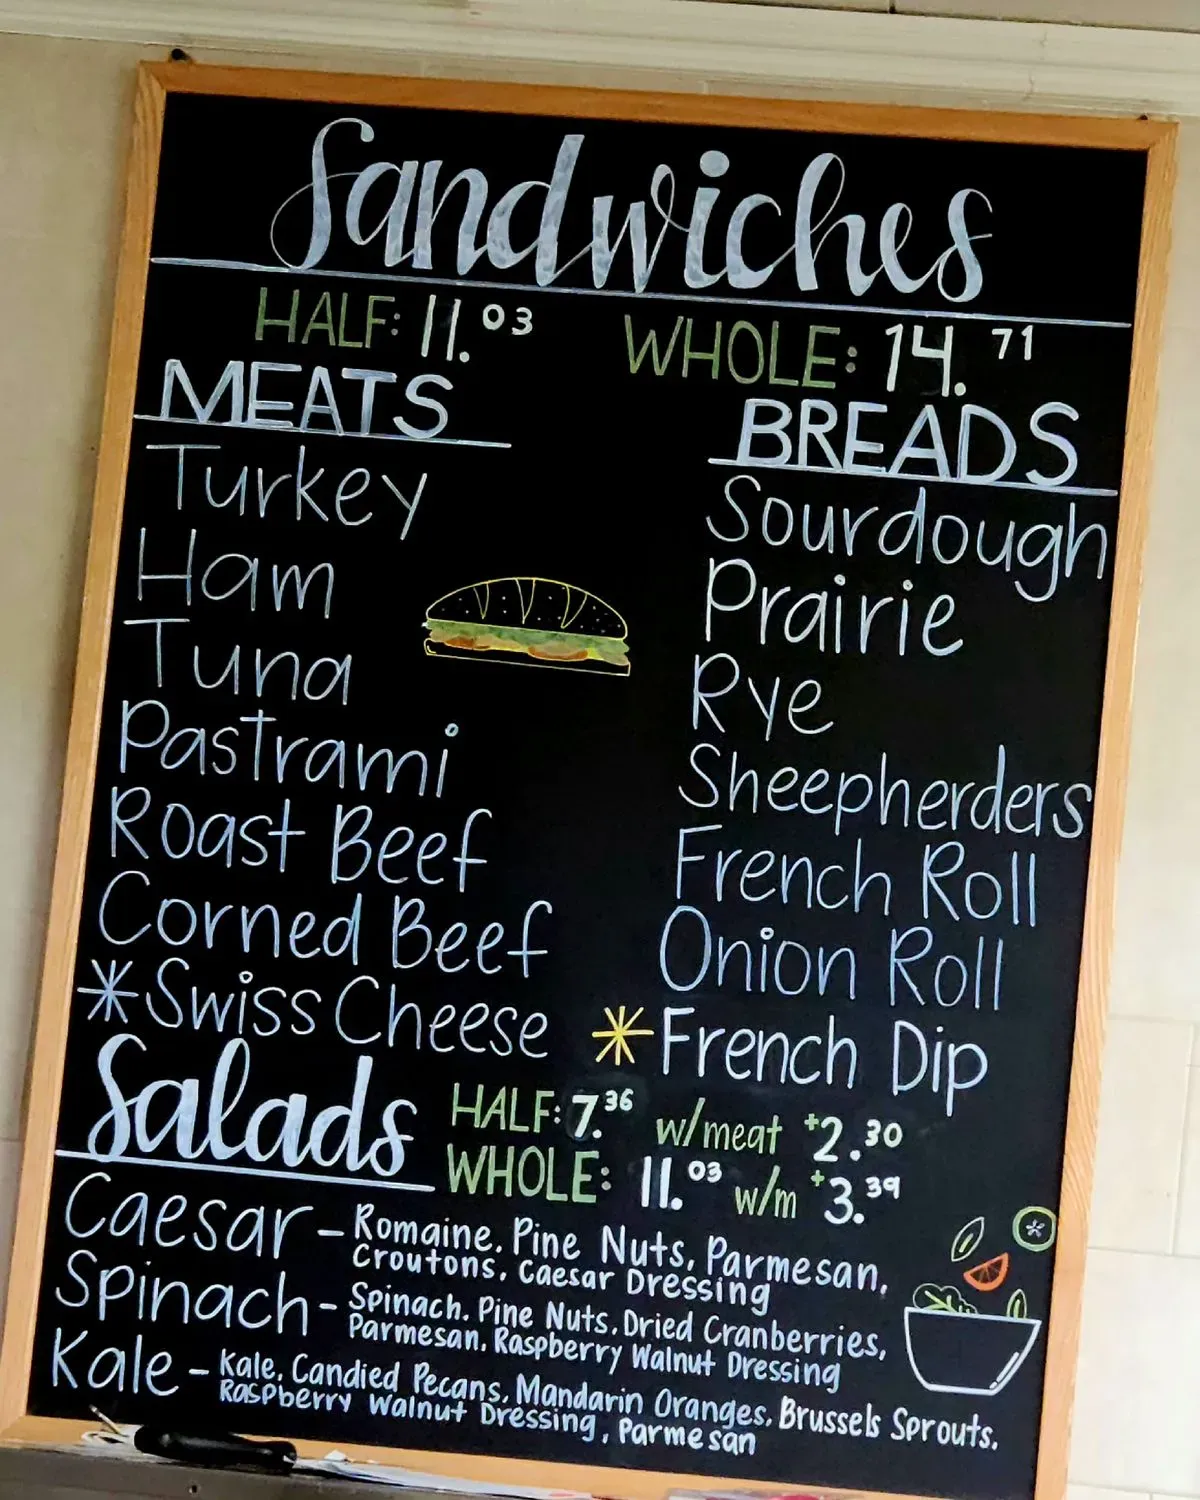 Sandwiches
HALF: 11.03 WHOLE: 14.71
MEATS
Turkey
Ham
Tuna
Pastrami
Roast Beef
Corned Beef
*Swiss Cheese
BREADS
Sourdough
Prairie
Rye
Sheepherders
French Roll
Onion Roll
*French Dip
Salads
HALF: 7.36 w/meat +2.30
WHOLE: 11.03 w/m +3.39
Caesar - Romaine, Pine Nuts, Parmesan,
Croutons, Caesar Dressing
Spinach - Spinach, Pine Nuts, Dried Cranberries,
Parmesan, Raspberry Walnut Dressing
Kale - Kale, Candied Pecans, Mandarin Oranges, Brussels Sprouts,
Raspberry Walnut Dressing, Parmesan